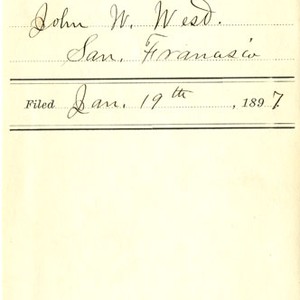 John W. West.
San. Francisco
Filed Jan. 19th, 1897